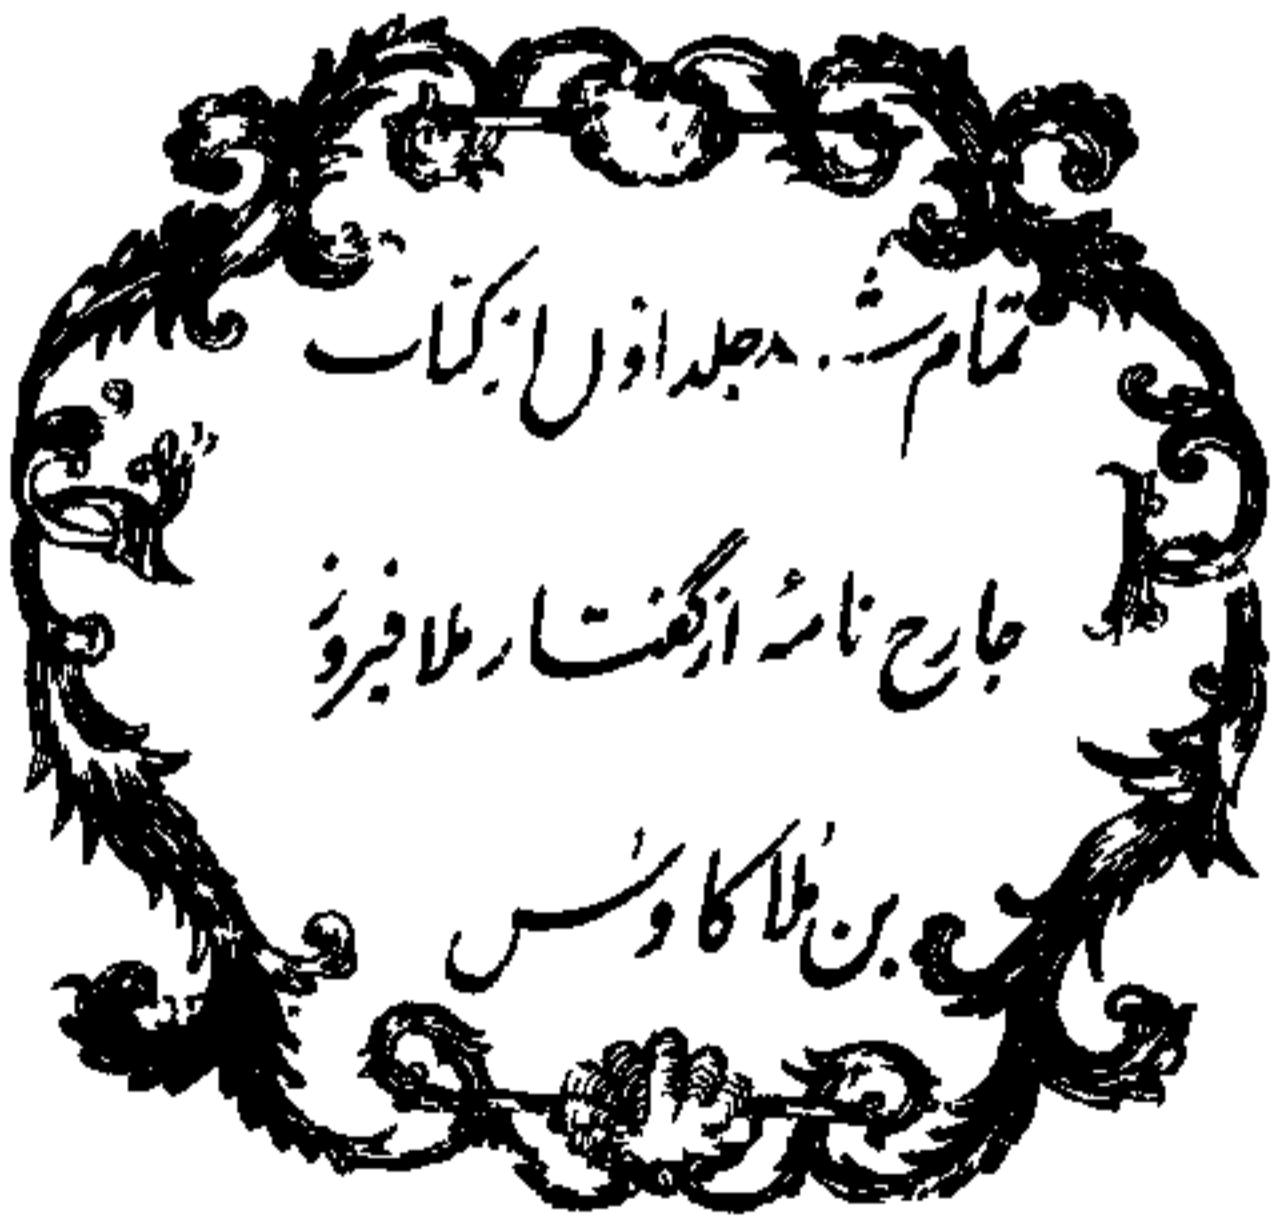 تمام شد جلد اول از کتاب
جارج نامهٔ از گفتار ملا فیروز
بن ملا کاوس